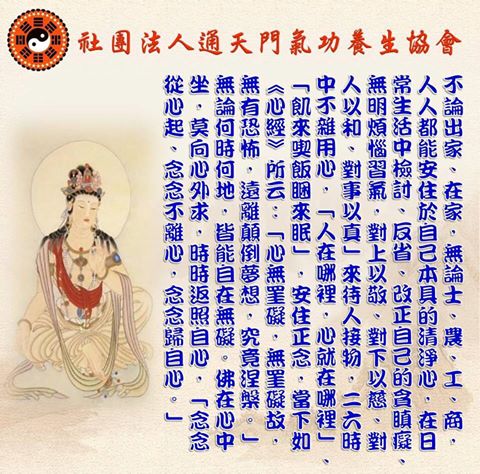 社團法人通天門氣功養生協會
不論出家、在家，無論士、農、工、商，
人人都能安住於自己本具的清淨心，在日
常生活中檢討、反省、改正自己的貪瞋癡、
無明煩惱習氣，對上以敬、對下以慈、對
人以和、對事以真」來待人接物，二六時
中不雜用心，「人在哪裡，心就在哪裡」、
「飢來喫飯睏來眠」，安住正念，當下如
《心經》所云：「心無罣礙，無罣礙故，
無有恐怖，遠離顛倒夢想，究竟涅槃。」
無論何時何地，皆能自在無礙。佛在心中
坐，莫向心外求，時時返照自心，「念念
從心起，念念不離心，念念歸自心。」